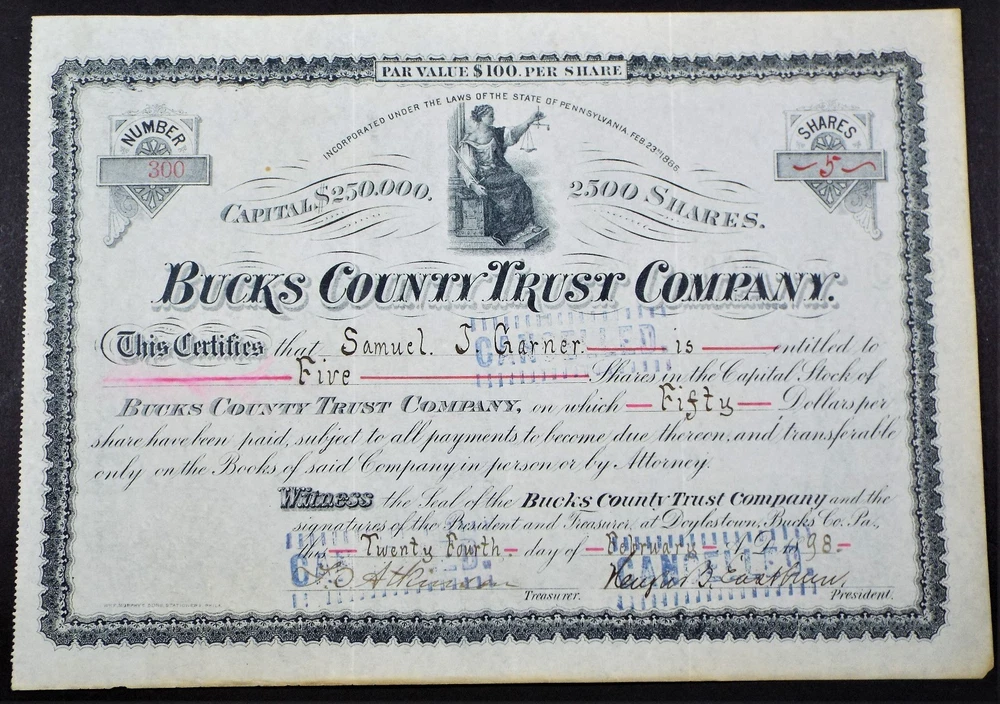 PAR VALUE $100. PER SHARE
INCORPORATED UNDER THE LAWS OF THE STATE OF PENNSYLVANIA, FEB 23RD 1886.
NUMBER
300
SHARES
5
CAPITAL $250.000.
2500 SHARES.
BUCKS COUNTY TRUST COMPANY.
This Certifies that Samuel. J Garner. is entitled to
Five Shares in the Capital Stock of
BUCKS COUNTY TRUST COMPANY, on which Fifty Dollars per
share have been paid, subject to all payments to become due thereon, and transferable
only on the Books of said Company in person or by Attorney.
Witness the Seal of the Bucks County Trust Company and the
signatures of the President and Treasurer, at Doylestown, Bucks Co. Pa.,
this Twenty Fourth day of February A.D. 1898.
Atkinson
Eastburn,
Treasurer.
President.
CANCELLED.
CANCELLED.
CANCELLED.